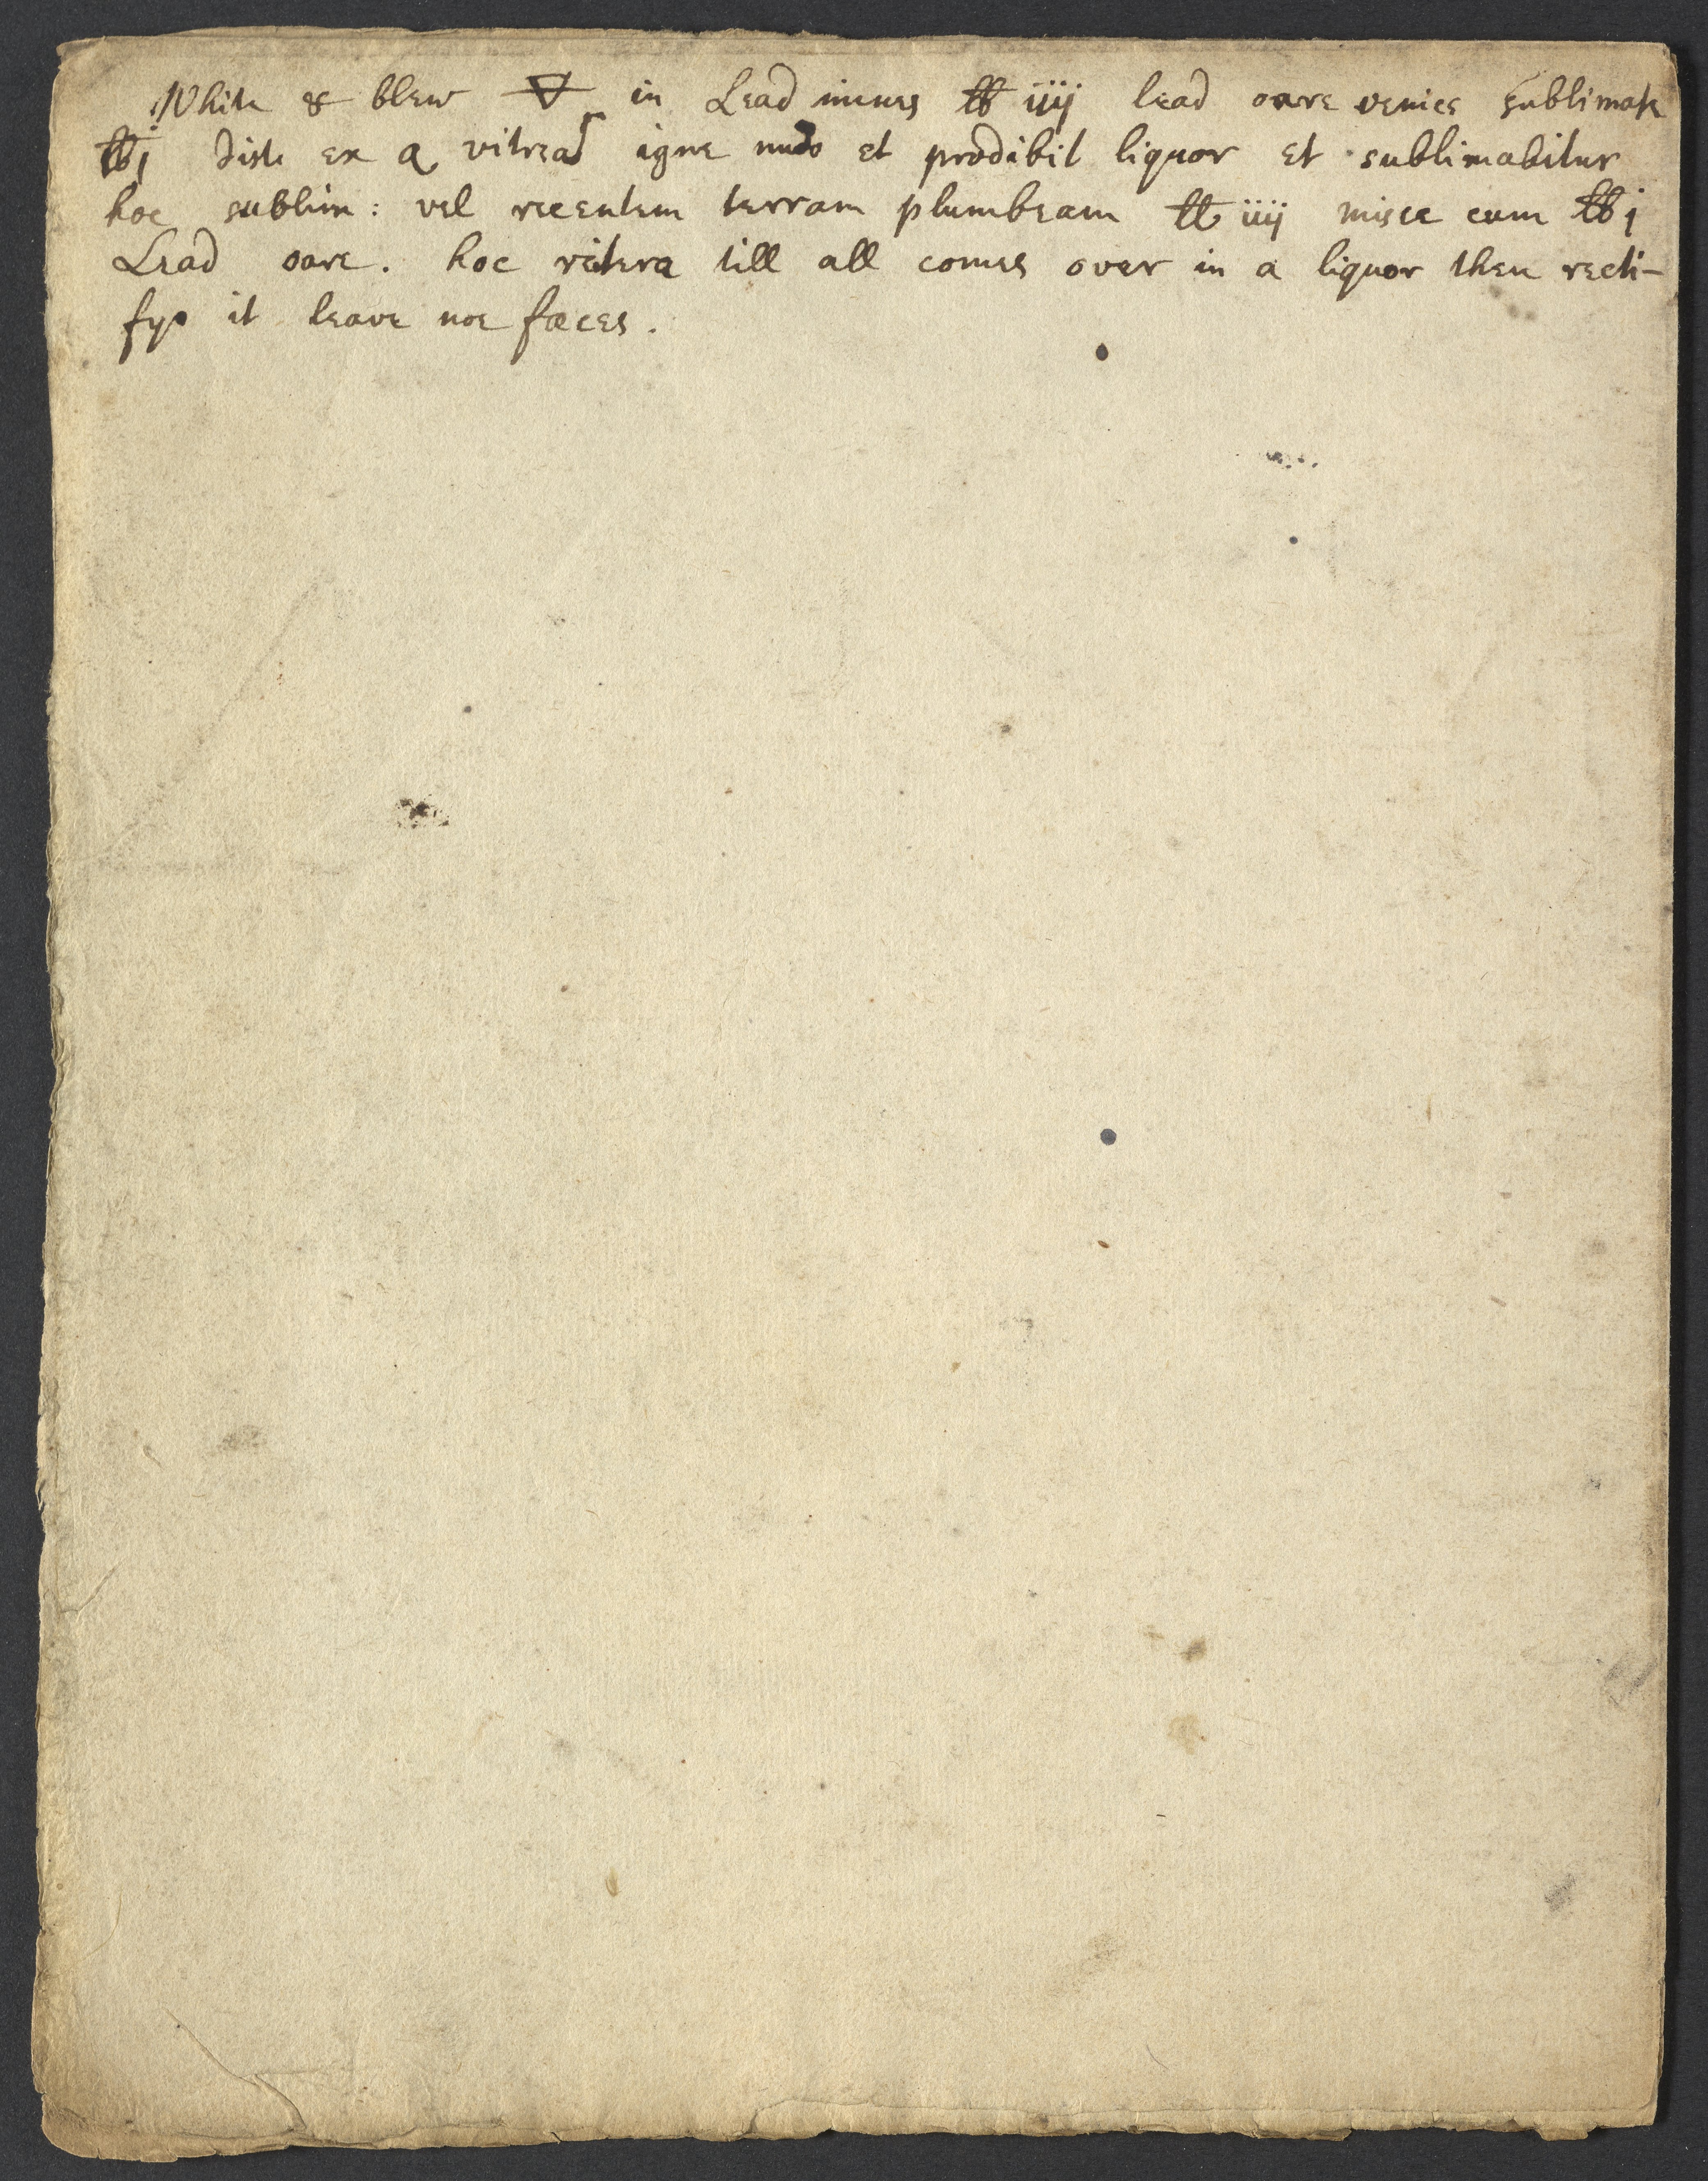 White & blew 🜃 in Lead mines ℔ iiij lead oare venice sublimate
℔j dist: ex a vitrea igne nudo et prodibit liquor et sublimabitur
hoc sublim: vel recentem terram plumbeam ℔ iiij misce cum ℔j
Lead oare. hoc reitera till all comes over in a liquor then recti-
fye it leave noe fæces.